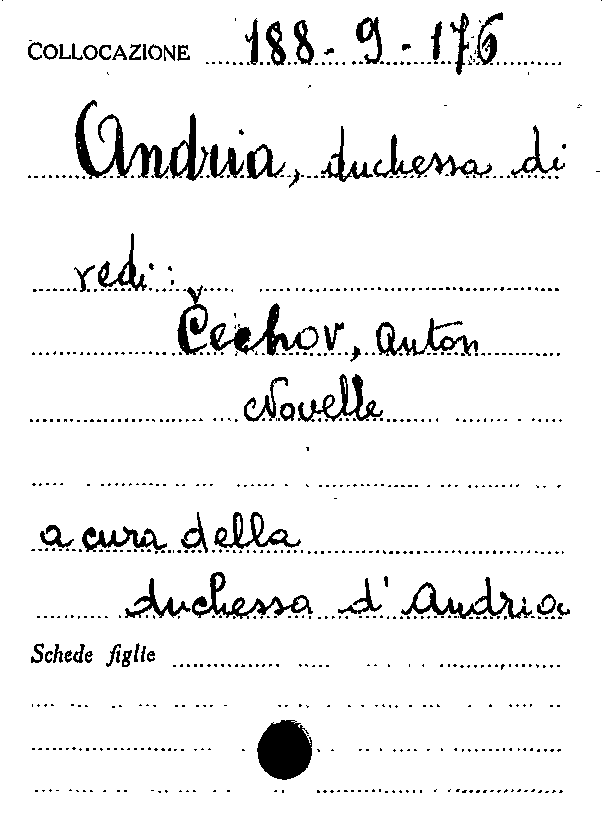 COLLOCAZIONE 188-9-176
Andria, duchessa di
vedi:
Čechov, Anton
Novelle
a cura della
duchessa d'Andria
Schede figlie